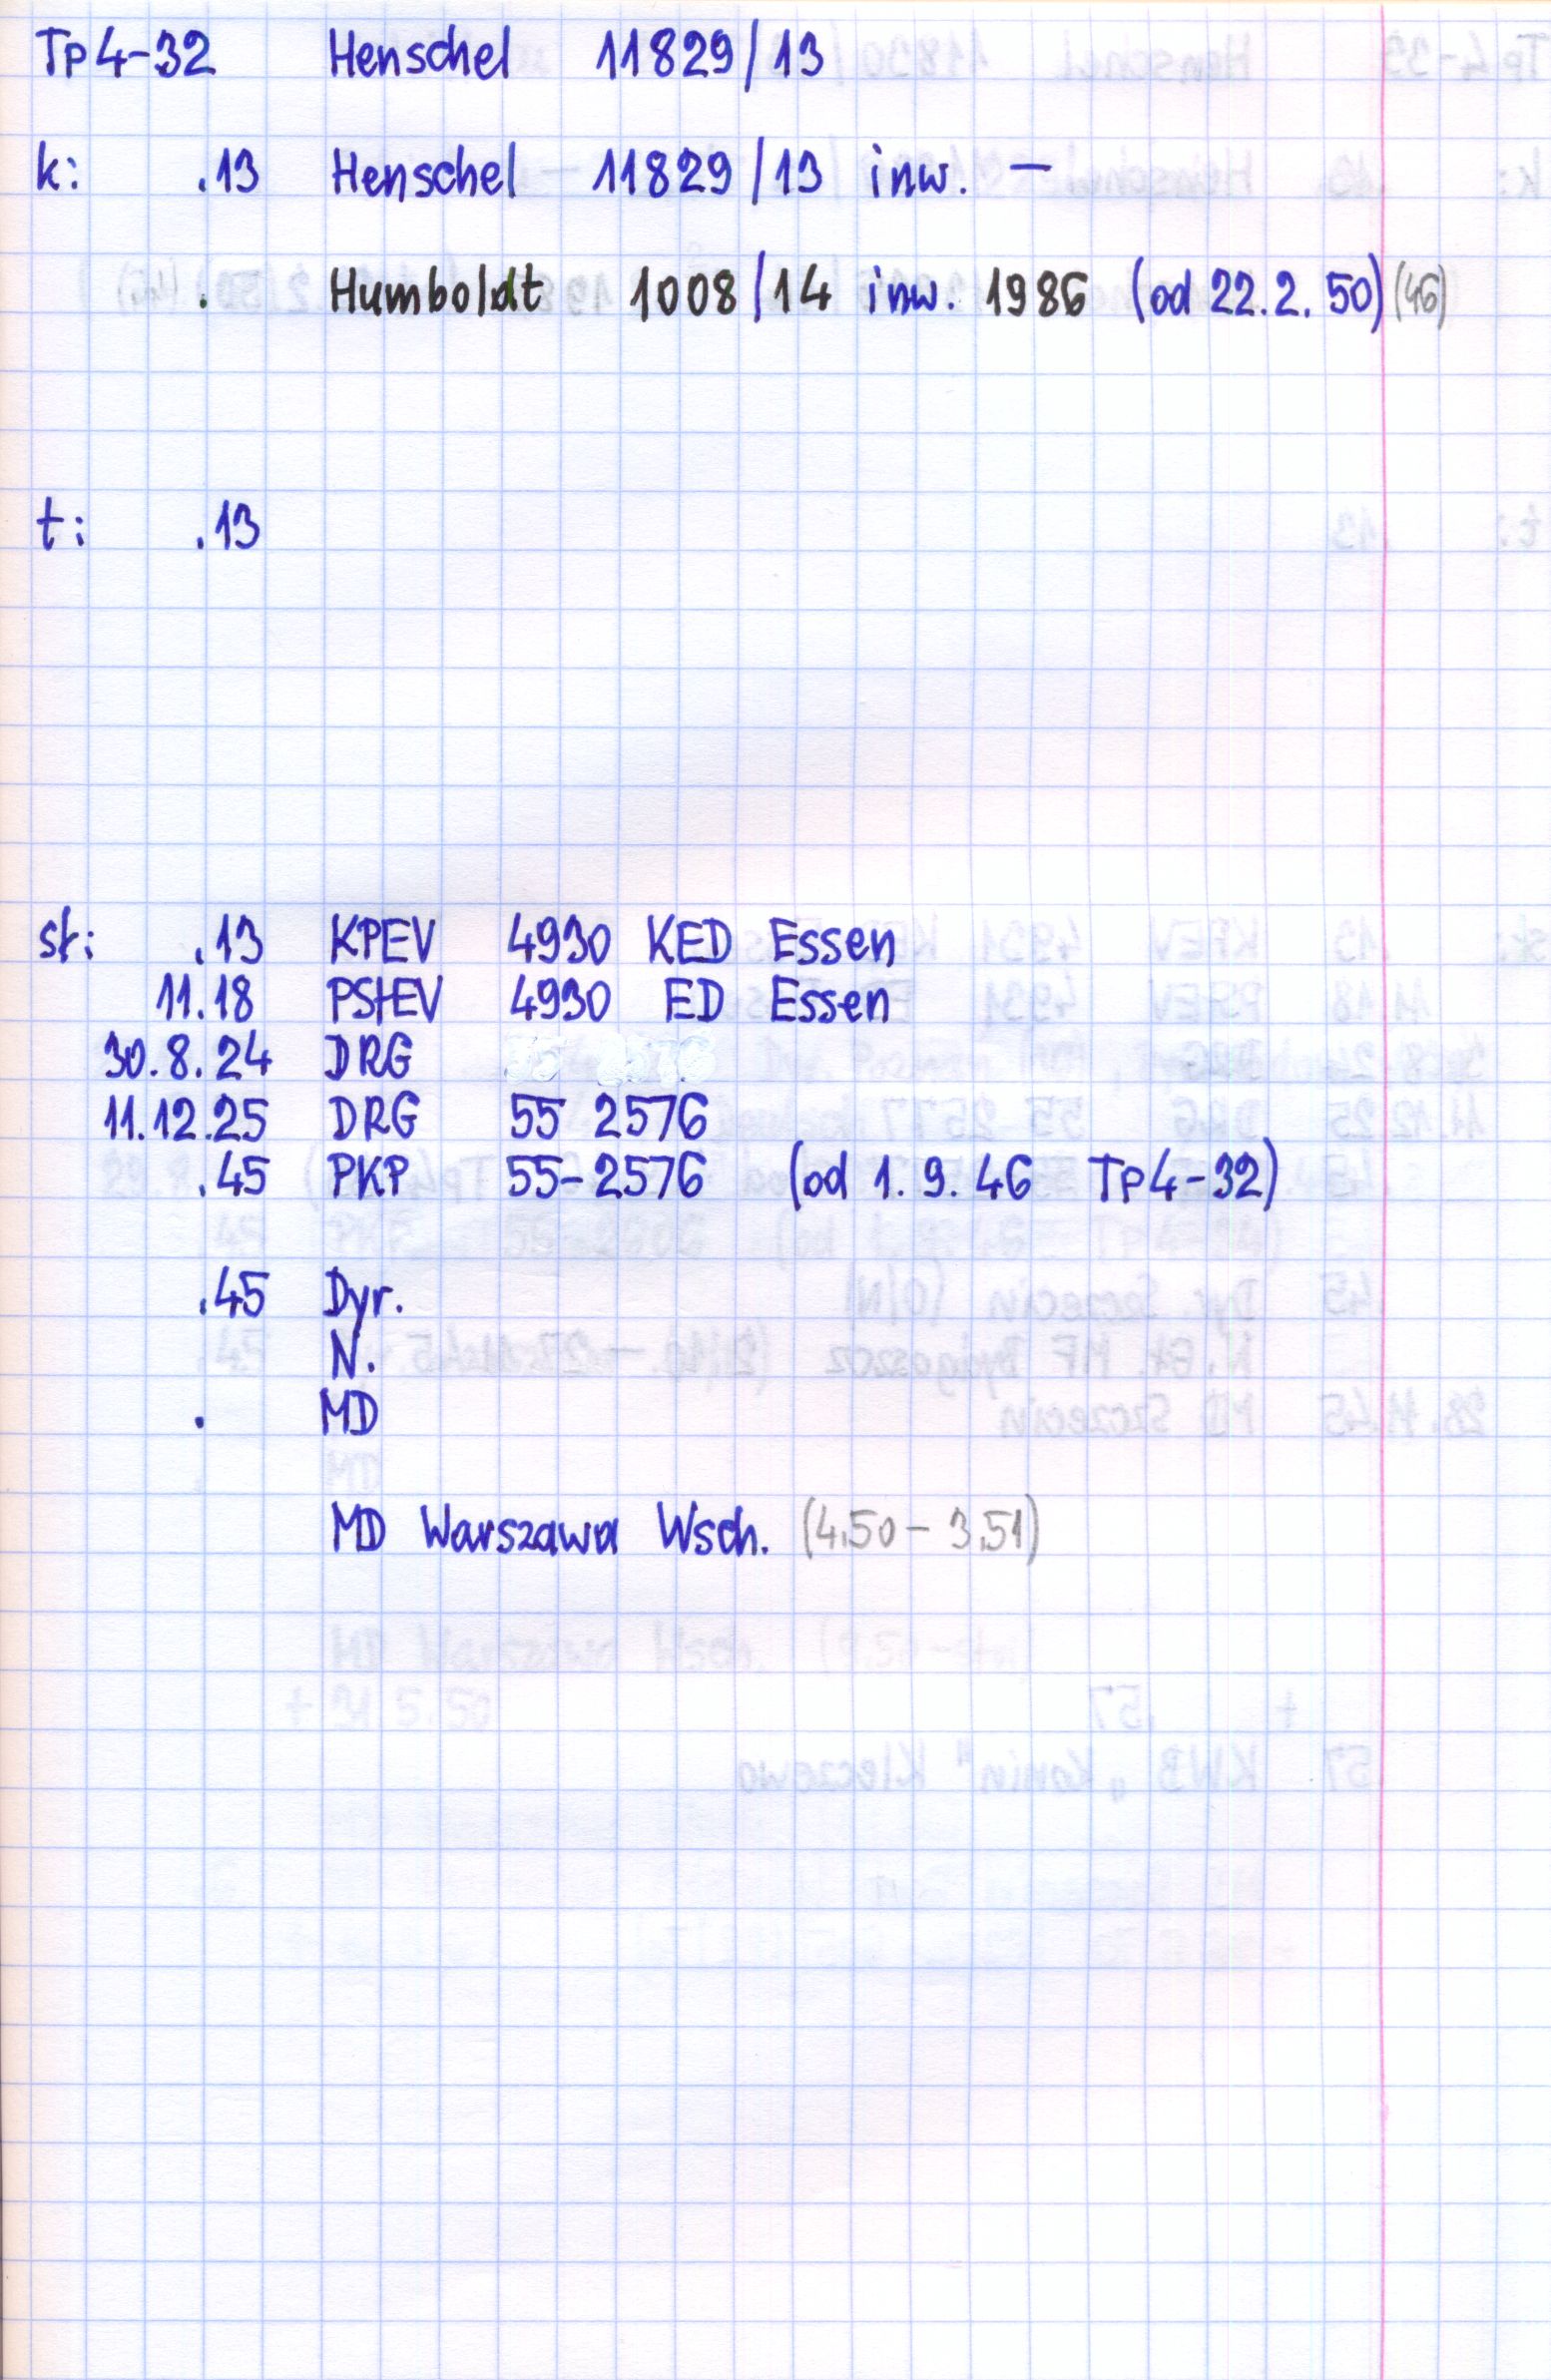 Tp4-32 Henschel 11829/13
k: .13 Henschel 11829/13 inw. —
. Humboldt 1008/14 inw. 1986 (od 22.2.50) (46)
t: .13
st: .13 KPEV 4930 KED Essen
11.18 PStEV 4930 ED Essen
30.8.24 DRG
11.12.25 DRG 55 2576
.45 PKP 55-2576 (od 1.9.46 Tp4-32)
.45 Dyr.
N.
. MD
MD Warszawa Wsch. (4.50 - 3.51)